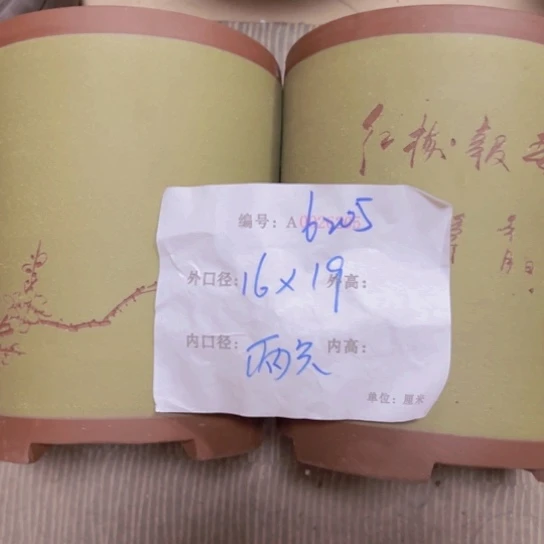 红梅报春
年
月
编号: A 6205
外口径: 16×19 外高:
内口径: 两只 内高:
单位: 厘米